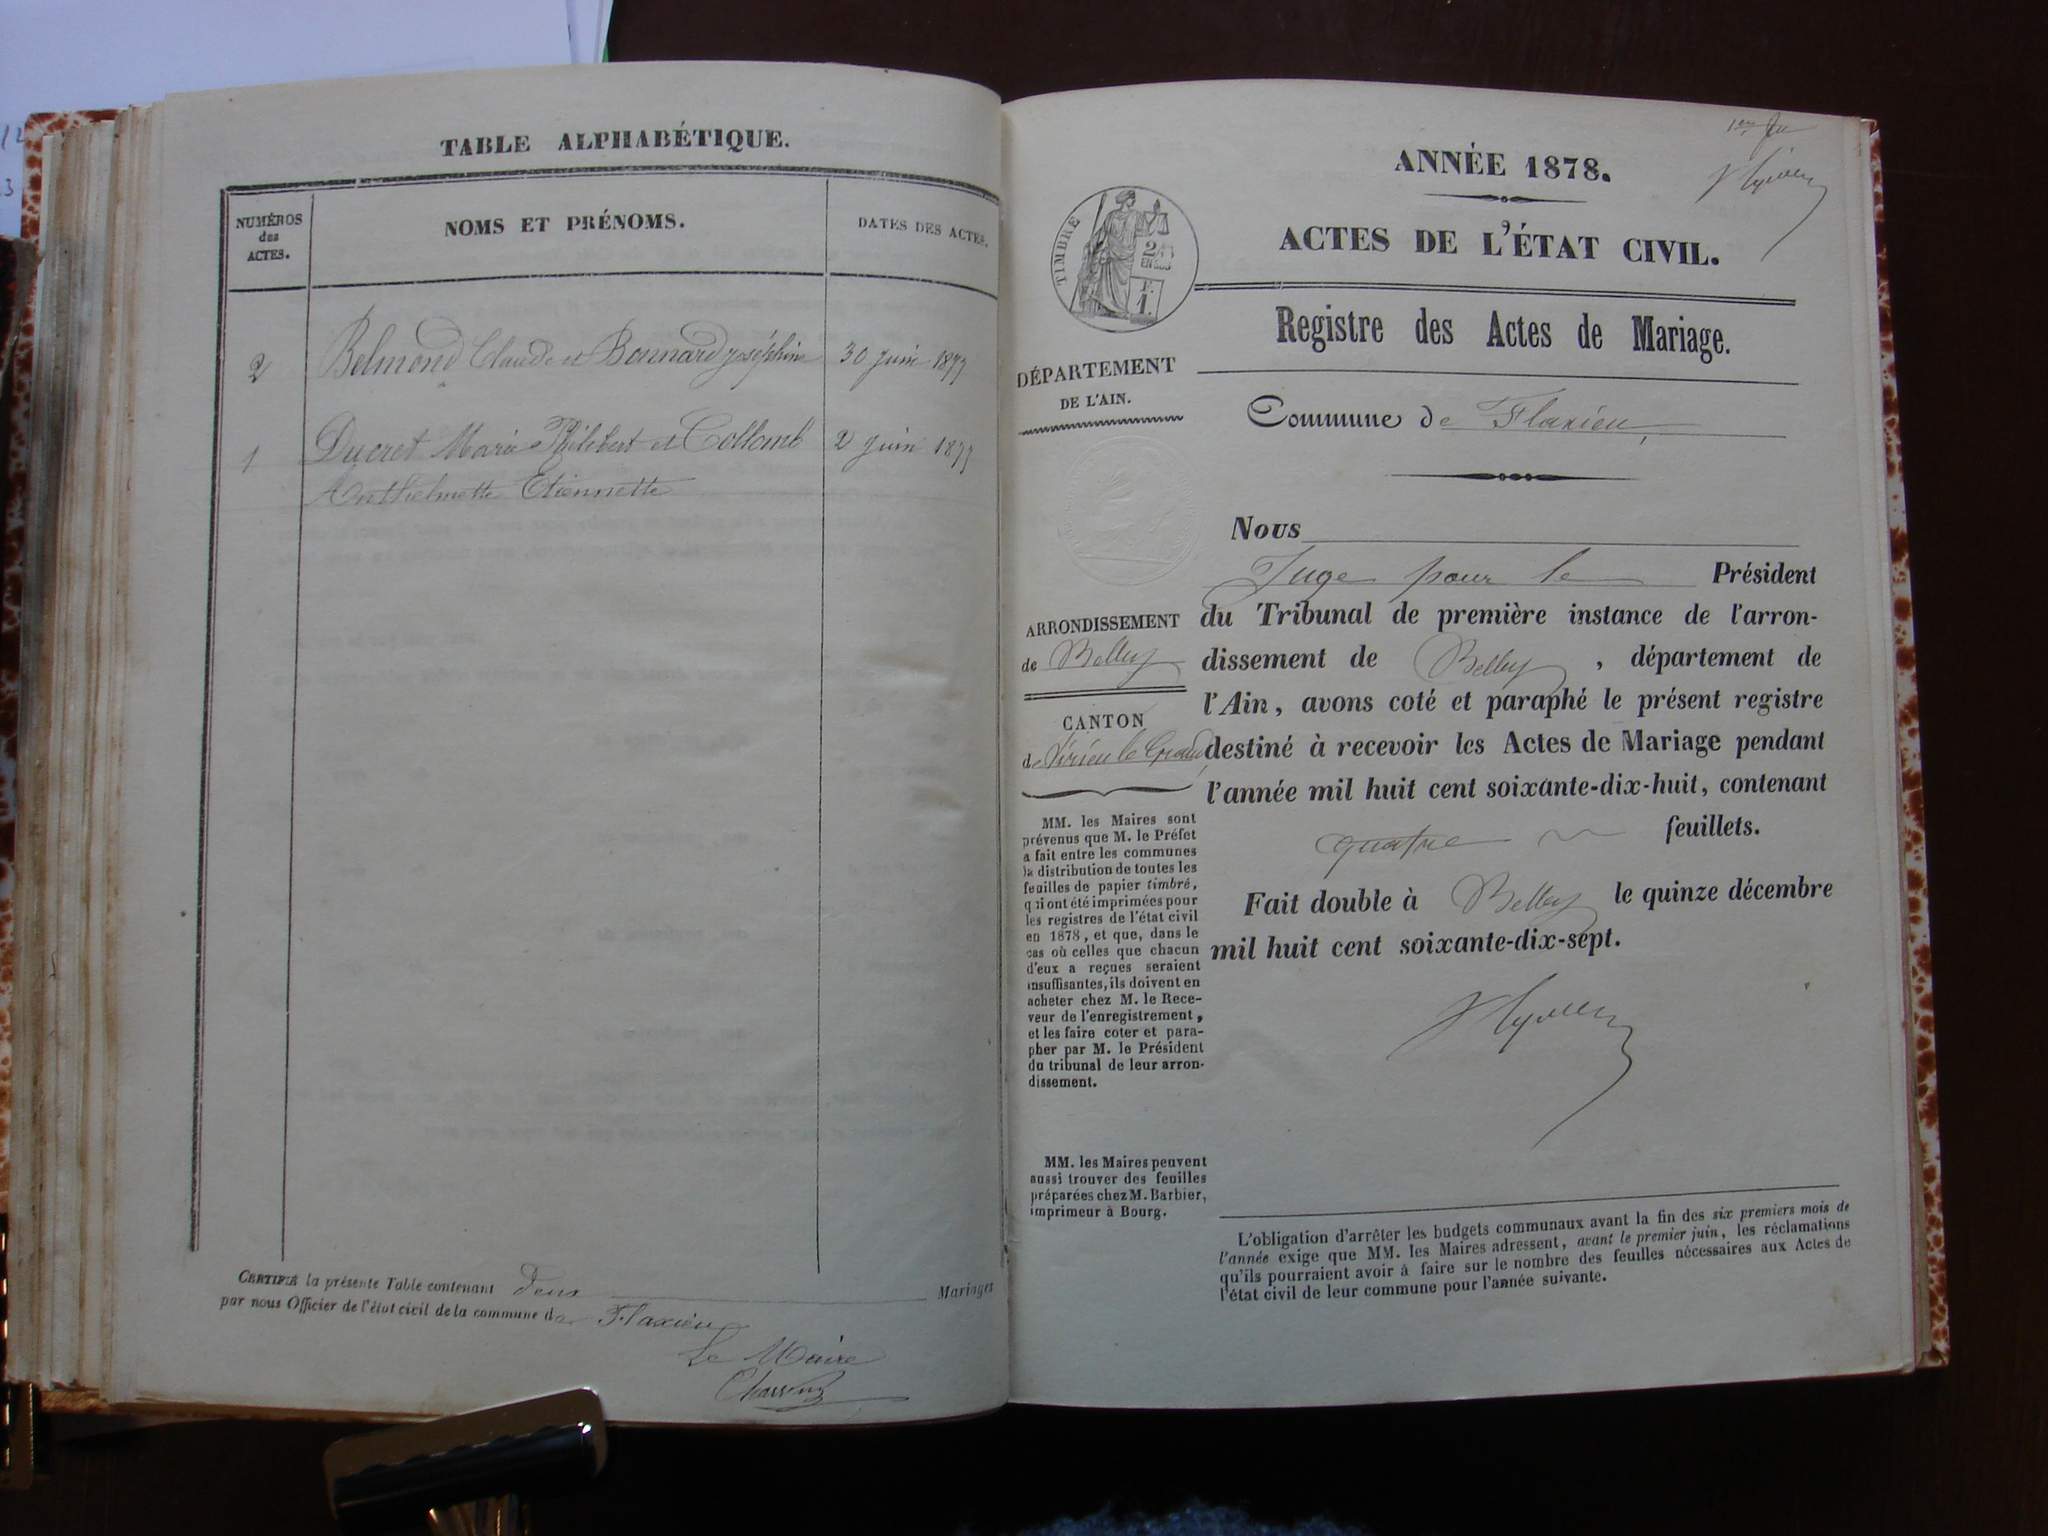 TABLE ALPHABÉTIQUE.
NUMÉROS
des
ACTES.
NOMS ET PRÉNOMS.
DATES DES ACTES.
2 Belmond Claude et Bonnard Joséphine 30 juin 1877
1 Ducret Marie Philibert et Collomb 2 juin 1877
Anthelmette Etiennette
CERTIFIÉ la présente Table contenant deux Mariages
par nous Officier de l'état civil de la commune de Flaxieu
Le Maire
1er
ANNÉE 1878.
ACTES DE L'ÉTAT CIVIL.
TIMBRE
EN SUS
F.
1.
Registre des Actes de Mariage.
DÉPARTEMENT
DE L'AIN.
Commune de Flaxieu
Nous
Juge pour le Président
ARRONDISSEMENT
de Belley
CANTON
de Virieu le Grand
du Tribunal de première instance de l'arron-
dissement de Belley, département de
l'Ain, avons coté et paraphé le présent registre
destiné à recevoir les Actes de Mariage pendant
l'année mil huit cent soixante-dix-huit, contenant
quatre feuillets.
Fait double à Belley le quinze décembre
mil huit cent soixante-dix-sept.
MM. les Maires sont
prévenus que M. le Préfet
a fait entre les communes
la distribution de toutes les
feuilles de papier timbré,
qui ont été imprimées pour
les registres de l'état civil
en 1878, et que, dans le
cas où celles que chacun
d'eux a reçues seraient
insuffisantes, ils doivent en
acheter chez M. le Rece-
veur de l'enregistrement,
et les faire coter et para-
pher par M. le Président
du tribunal de leur arron-
dissement.
MM. les Maires peuvent
aussi trouver des feuilles
préparées chez M. Barbier,
imprimeur à Bourg.
L'obligation d'arrêter les budgets communaux avant la fin des six premiers mois de
l'année exige que MM. les Maires adressent, avant le premier juin, les réclamations
qu'ils pourraient avoir à faire sur le nombre des feuilles nécessaires aux Actes de
l'état civil de leur commune pour l'année suivante.